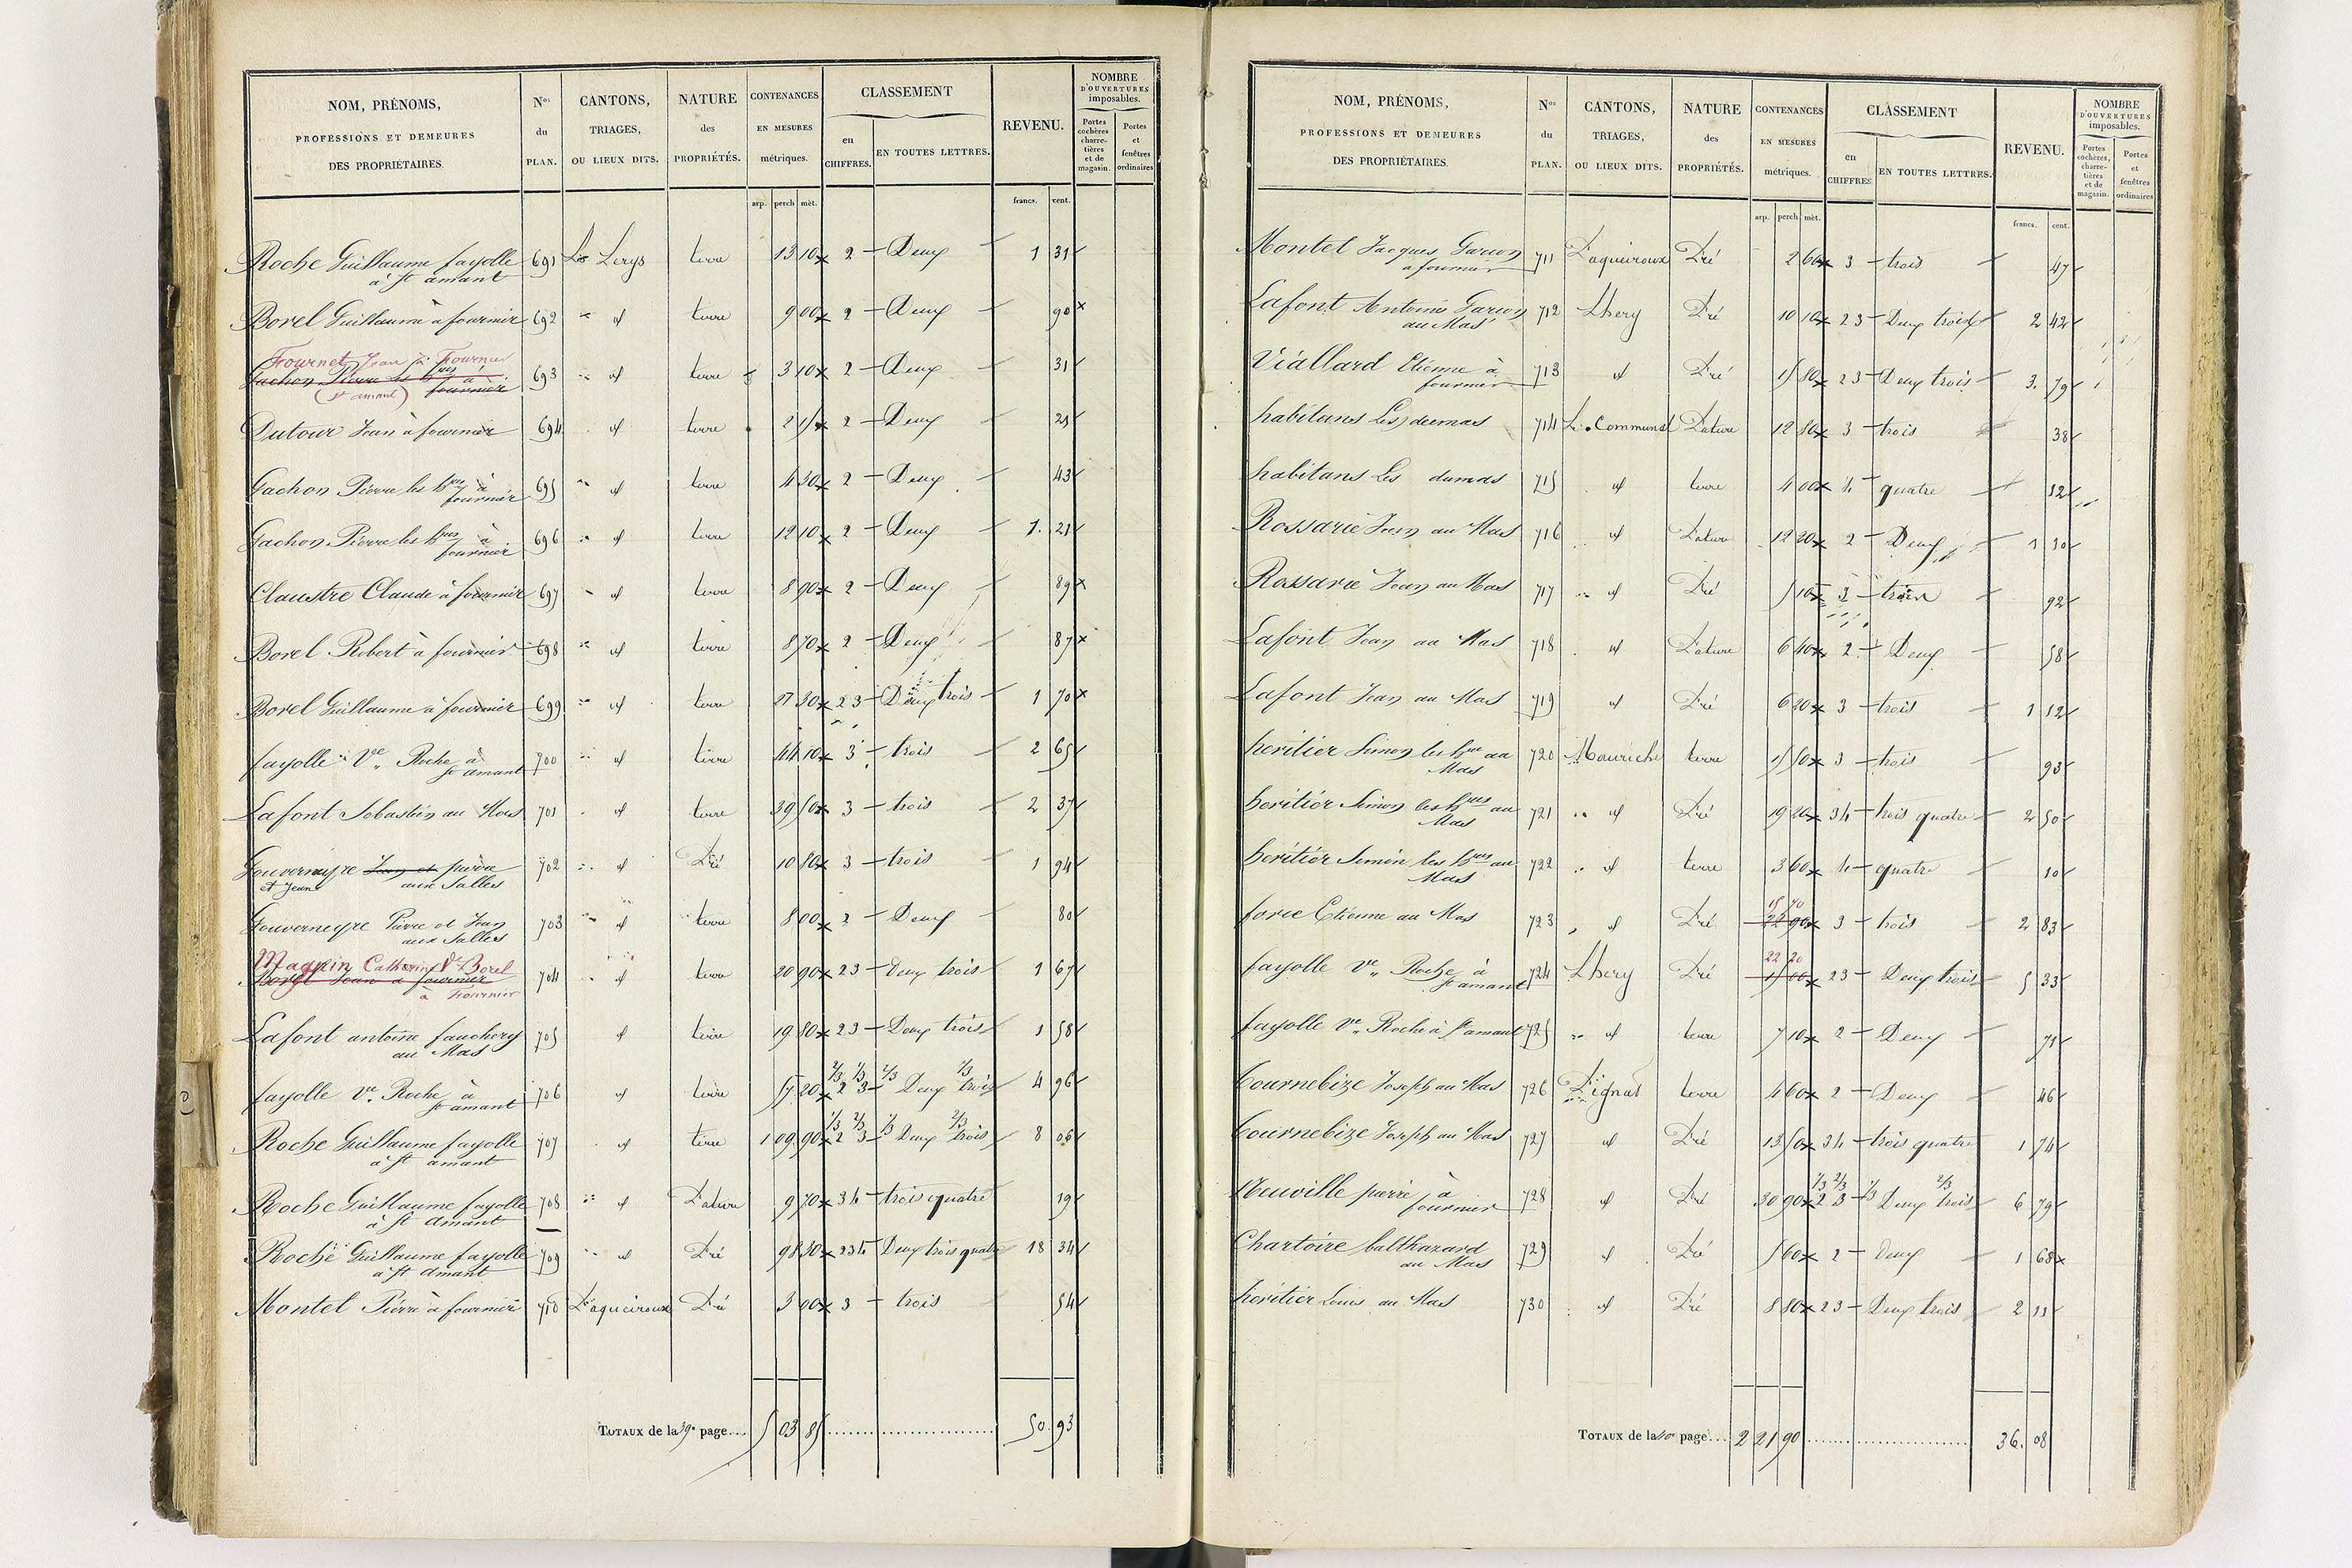 NOM, PRÉNOMS, PROFESSIONS ET DEMEURES DES PROPRIÉTAIRES. Nos du PLAN. CANTONS, TRIAGES, OU LIEUX DITS. NATURE des PROPRIÉTÉS. CONTENANCES EN MESURES métriques. CLASSEMENT en CHIFFRES. EN TOUTES LETTRES. REVENU. NOMBRE D'OUVERTURES imposables. Portes cochères charretières et de magasin. Portes et fenêtres ordinaires
arp. perch mèt. francs. cent.
Roche Guillaume fayolle à St amant 691 Lerys terre 13 10 2 Deux 1 31
Borel Guillaume à fournier 692 id terre 9 00 2 Deux 90
Fournet Jean à Fournier
Gachon Pierre les hres à fournier (St amant) 693 id terre 3 10 2 Deux 31
Dutour Jean à fournier 694 id terre 2 15 2 Deux 21
Gachon Pierre les hres à fournier 695 id terre 4 30 2 Deux 43
Gachon Pierre les hres à fournier 696 id terre 12 10 2 Deux 1 21
Claustre Claude à fournier 697 id terre 8 90 2 Deux 89
Borel Robert à fournier 698 id terre 8 70 2 Deux 87
Borel Guillaume à fournier 699 id terre 27 30 2 3 Deux trois 1 70
fayolle Ve Roche à St amant 700 id terre 44 10 3 trois 2 65
Lafont Sebastien au Mas 701 id terre 39 50 3 trois 2 37
Gouverneyre Jean et pierre et Jean aux Salles 702 id Pré 10 80 3 trois 1 94
Gouverneyre Pierre et Jean aux Salles 703 id terre 8 00 2 Deux 80
Magnin Catherine Ve Borel
Borel Jean à fournier à Fournier 704 id terre 20 90 2 3 Deux trois 1 67
Lafont antoine fauchery au Mas 705 id terre 19 80 2 3 Deux trois 1 58
fayolle Ve Roche à St amant 706 id terre 57 20 2/3 1/3 2 3 2/3 Deux 1/3 trois 4 96
Roche Guillaume fayolle à St amant 707 id terre 1 09 90 1/3 2/3 2 3 1/3 Deux 2/3 trois 8 06
Roche Guillaume fayolle à St amant 708 id Pature 9 70 3 4 trois quatre 19
Roche Guillaume fayolle à St amant 709 id Pré 98 30 2 3 4 Deux trois quatre 18 34
Montel Pierre à fournier 710 Paqueiroux Pré 3 00 3 trois 54
TOTAUX de la 39e page.... 5 03 85 50. 93
NOM, PRÉNOMS, PROFESSIONS ET DEMEURES DES PROPRIÉTAIRES. Nos du PLAN. CANTONS, TRIAGES, OU LIEUX DITS. NATURE des PROPRIÉTÉS. CONTENANCES EN MESURES métriques. CLASSEMENT en CHIFFRES EN TOUTES LETTRES. REVENU. NOMBRE D'OUVERTURES imposables. Portes cochères, charretières et de magasin. Portes et fenêtres ordinaires
arp. perch mèt. francs. cent.
Montel Jacques Garcon a fournier 711 Paqueiroux Pré 2 60 3 trois 47
Lafont Antoine Garcon au Mas 712 Lhery Pré 10 10 2 3 Deux trois 2 42
Viallard Etienne à fournier 713 id Pré 15 80 2 3 Deux trois 3. 79
habitans Les dumas 714 Le Communal Pature 12 80 3 trois 38
habitans Les dumas 715 id terre 4 00 4 quatre 12
Rossarie Jean au Mas 716 id Pature 12 20 2 Deux 1 10
Rossarie Jean au Mas 717 id Pré 5 10 3 trois 92
Lafont Jean au Mas 718 id Pature 6 40 2 Deux 58
Lafont Jean au Mas 719 id Pré 6 20 3 trois 1 12
heritier Simon les hres au Mas 720 Mauriche terre 15 50 3 trois 93
heritier Simon les hres au Mas 721 id Pré 19 20 3 4 trois quatre 2 50
heritier Simon les hres au Mas 722 id terre 3 60 4 quatre 10
15 70
force Etienne au Mas 723 id Pré 22 90 3 trois 2 83
22 20
fayolle Ve Roche à St amant 724 Lhery Pré 15 00 2 3 Deux trois 5 33
fayolle Ve Roche à St amant 725 id terre 7 10 2 Deux 71
Cournebize Joseph au Mas 726 Pignat terre 4 60 2 Deux 46
Cournebize Joseph au Mas 727 id Pré 13 50 3 4 trois quatre 1 74
Neuville pierre à fournier 728 id Pré 30 90 1/3 2/3 2 3 1/3 Deux 2/3 trois 6 79
Chartoire balthazard au Mas 729 id Pré 5 60 2 Deux 1 68
heritier Louis au Mas 730 id Pré 8 80 2 3 Deux trois 2 11
TOTAUX de la 40e page.... 2 21 90 36. 08